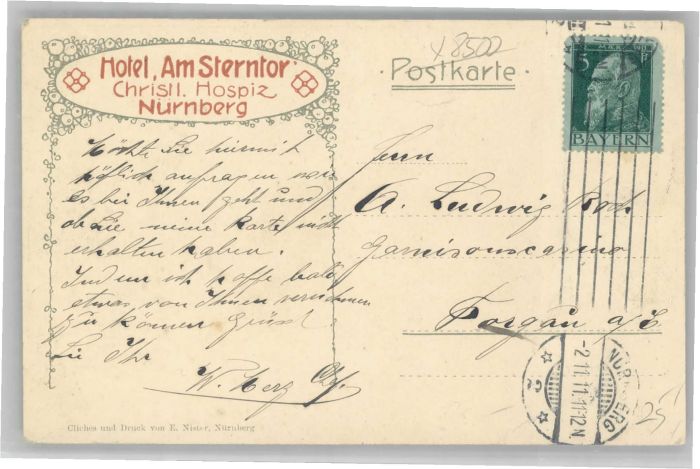 Hotel "Am Sterntor"
Christl. Hospiz
Nürnberg
x8500
Postkarte
5 MÄRZ 1911 PF
BAYERN
Möchte Sie hiermit
höflich anfragen wie
es bei Ihnen geht und
ob Sie meine Karte nicht
erhalten haben.
Indem ich hoffe bald
etwas von Ihnen vernehmen
zu können grüsst
Sie Ihr
W. Merz
Herrn
A. Ludwig Koch
Garnisonscasino
Torgau a/E.
NÜRNBERG
-2.11.11.11-12N
2
25
Cliches und Druck von E. Nister, Nürnberg